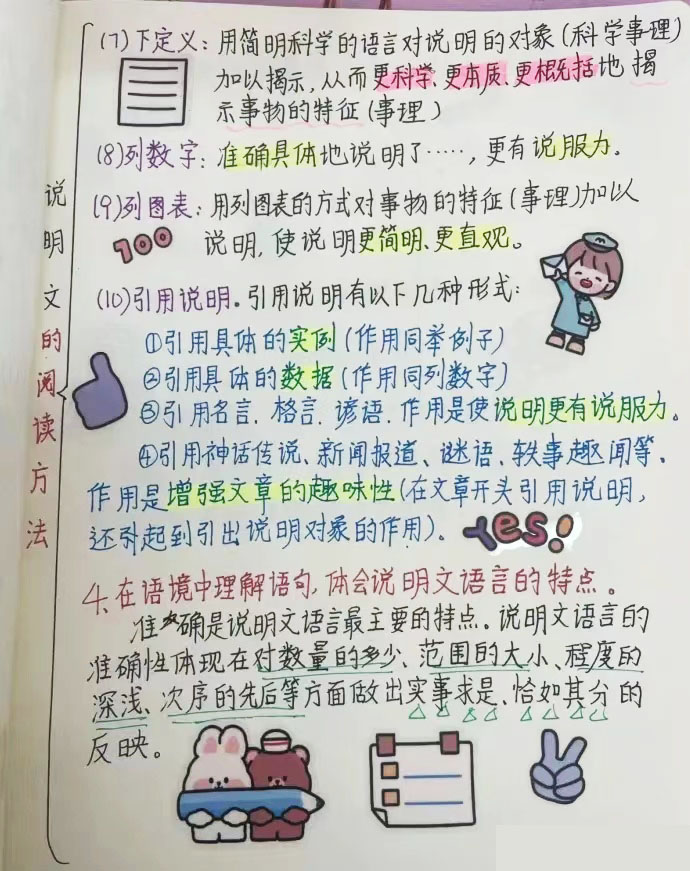 说明文的阅读方法
(7)下定义:用简明科学的语言对说明的对象(科学事理)
加以揭示,从而更科学、更本质、更概括地揭
示事物的特征(事理)
(8)列数字:准确具体地说明了……,更有说服力。
(9)列图表:用列图表的方式对事物的特征(事理)加以
100
说明,使说明更简明、更直观。
(10)引用说明.引用说明有以下几种形式:
①引用具体的实例(作用同举例子)
②引用具体的数据(作用同列数字)
③引用名言.格言.谚语.作用是使说明更有说服力。
④引用神话传说、新闻报道、谜语.轶事趣闻等.
作用是增强文章的趣味性(在文章开头引用说明,
还引起到引出说明对象的作用)。
Yes!
4.在语境中理解语句,体会说明文语言的特点。
准确是说明文语言最主要的特点.说明文语言的
准确性体现在对数量的多少、范围的大小、程度的
深浅、次序的先后等方面做出实事求是、恰如其分的
反映。